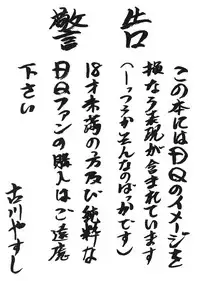 警告
この本にはDQのイメージを
損なう表現が含まれています
(ーつうかそんなのばっかです)
18才未満の方及び純粋な
DQファンの購入はご遠慮
下さい
古川やすし